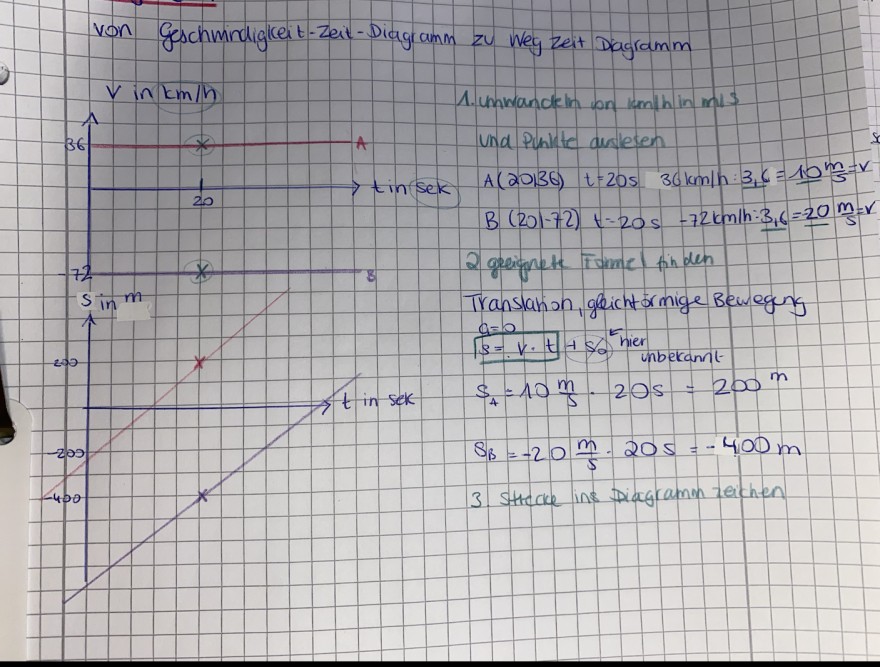 von Geschwindigkeit-Zeit-Diagramm zu Weg Zeit Diagramm
V in km/h
36
A
t in sek
20
-72
B
S in m
200
t in sek
-200
-400
1. umwandeln von km/h in m/s
und Punkte auslesen
A(20|36) t=20s 36km/h:3,6=10 m/s=v
B (20|-72) t=20s -72km/h:3,6=20 m/s=v
2 geeignete Formel finden
Translation, gleichförmige Bewegung
a=0
s= v·t + s0 hier
unbekannt
SA = 10 m/s · 20s = 200 m
SB = -20 m/s · 20s = -400m
3. Strecke ins Diagramm zeichen